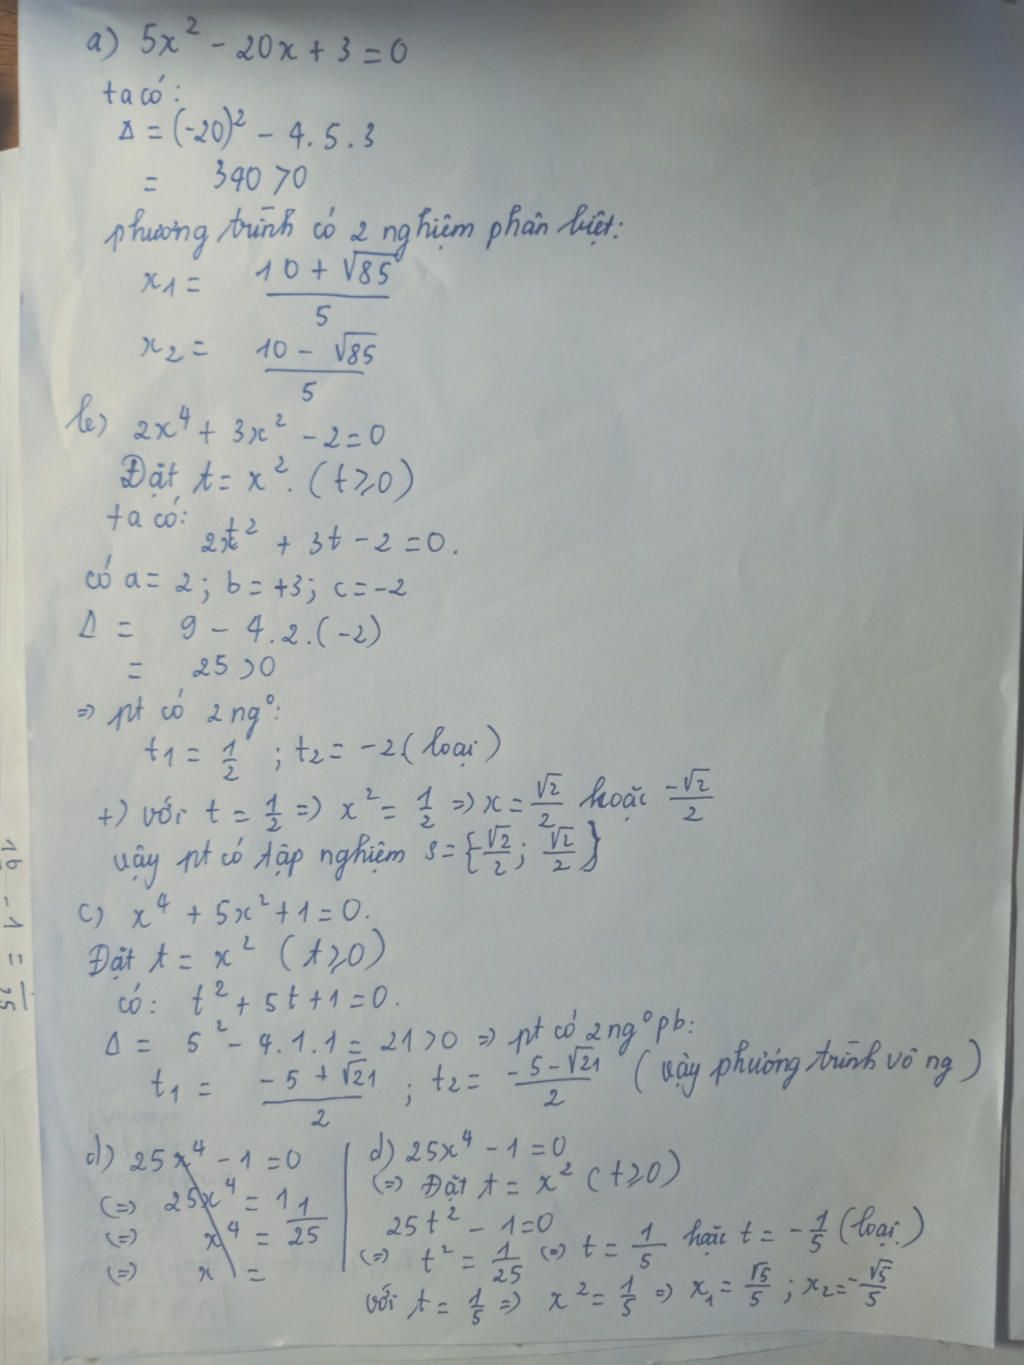 a) 5x² - 20x + 3 = 0
ta có:
Δ = (-20)² - 4.5.3
= 340 > 0
phương trình có 2 nghiệm phân biệt:
x₁ = (10 + √85)/5
x₂ = (10 - √85)/5
b) 2x⁴ + 3x² - 2 = 0
Đặt t = x². (t ≥ 0)
ta có:
2t² + 3t - 2 = 0.
có a = 2; b = +3; c = -2
Δ = 9 - 4.2.(-2)
= 25 > 0
=> pt có 2 ng°:
t₁ = 1/2 ; t₂ = -2 (loại)
+) với t = 1/2 => x² = 1/2 => x = √2/2 hoặc -√2/2
vậy pt có tập nghiệm S = {-√2/2; √2/2}
c) x⁴ + 5x² + 1 = 0.
Đặt t = x² (t ≥ 0)
có: t² + 5t + 1 = 0.
Δ = 5² - 4.1.1 = 21 > 0 => pt có 2 ng° pb:
t₁ = (-5 + √21)/2 ; t₂ = (-5 - √21)/2 (vậy phướng trình vô ng)
d) 25x⁴ - 1 = 0
(=> 25x⁴ = 1
(=> x⁴ = 1/25
(=> x =
d) 25x⁴ - 1 = 0
(=> Đặt t = x² (t ≥ 0)
25t² - 1 = 0
(=> t² = 1/25 (=> t = 1/5 hặc t = -1/5 (loại)
với t = 1/5 => x² = 1/5 => x₁ = √5/5 ; x₂ = -√5/5